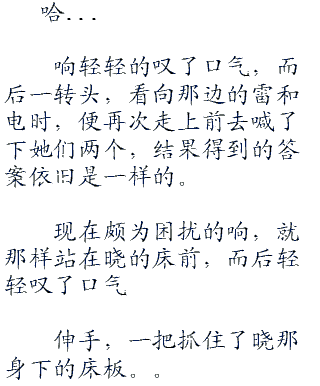 哈...
响轻轻的叹了口气，而
后一转头，看向那边的雷和
电时，便再次走上前去喊了
下她们两个，结果得到的答
案依旧是一样的。
现在颇为困扰的响，就
那样站在晓的床前，而后轻
轻叹了口气
伸手，一把抓住了晓那
身下的床板。。